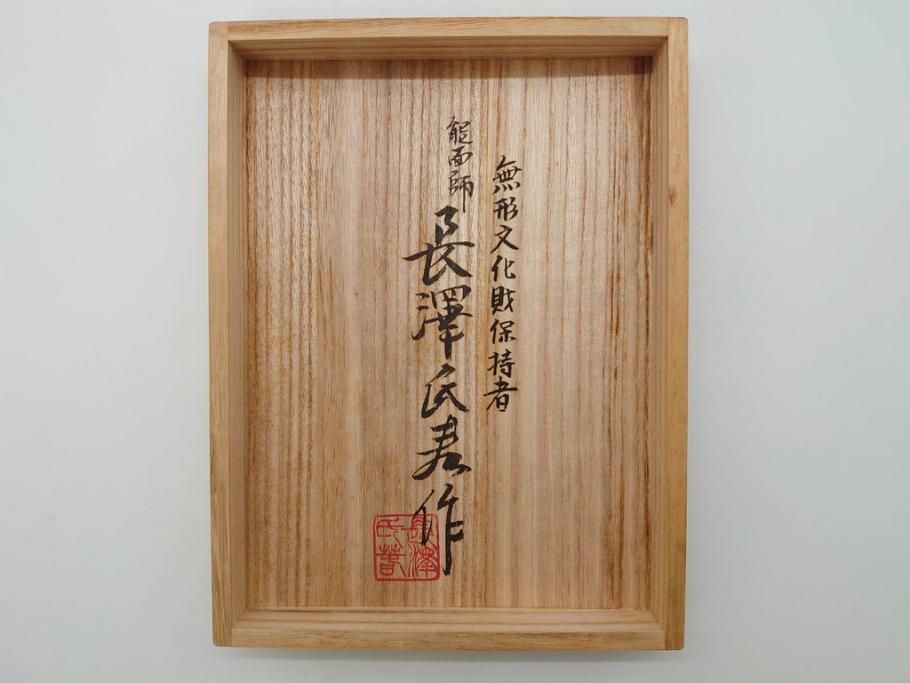 無形文化財保持者
能面師 長澤氏春作
長澤
氏春